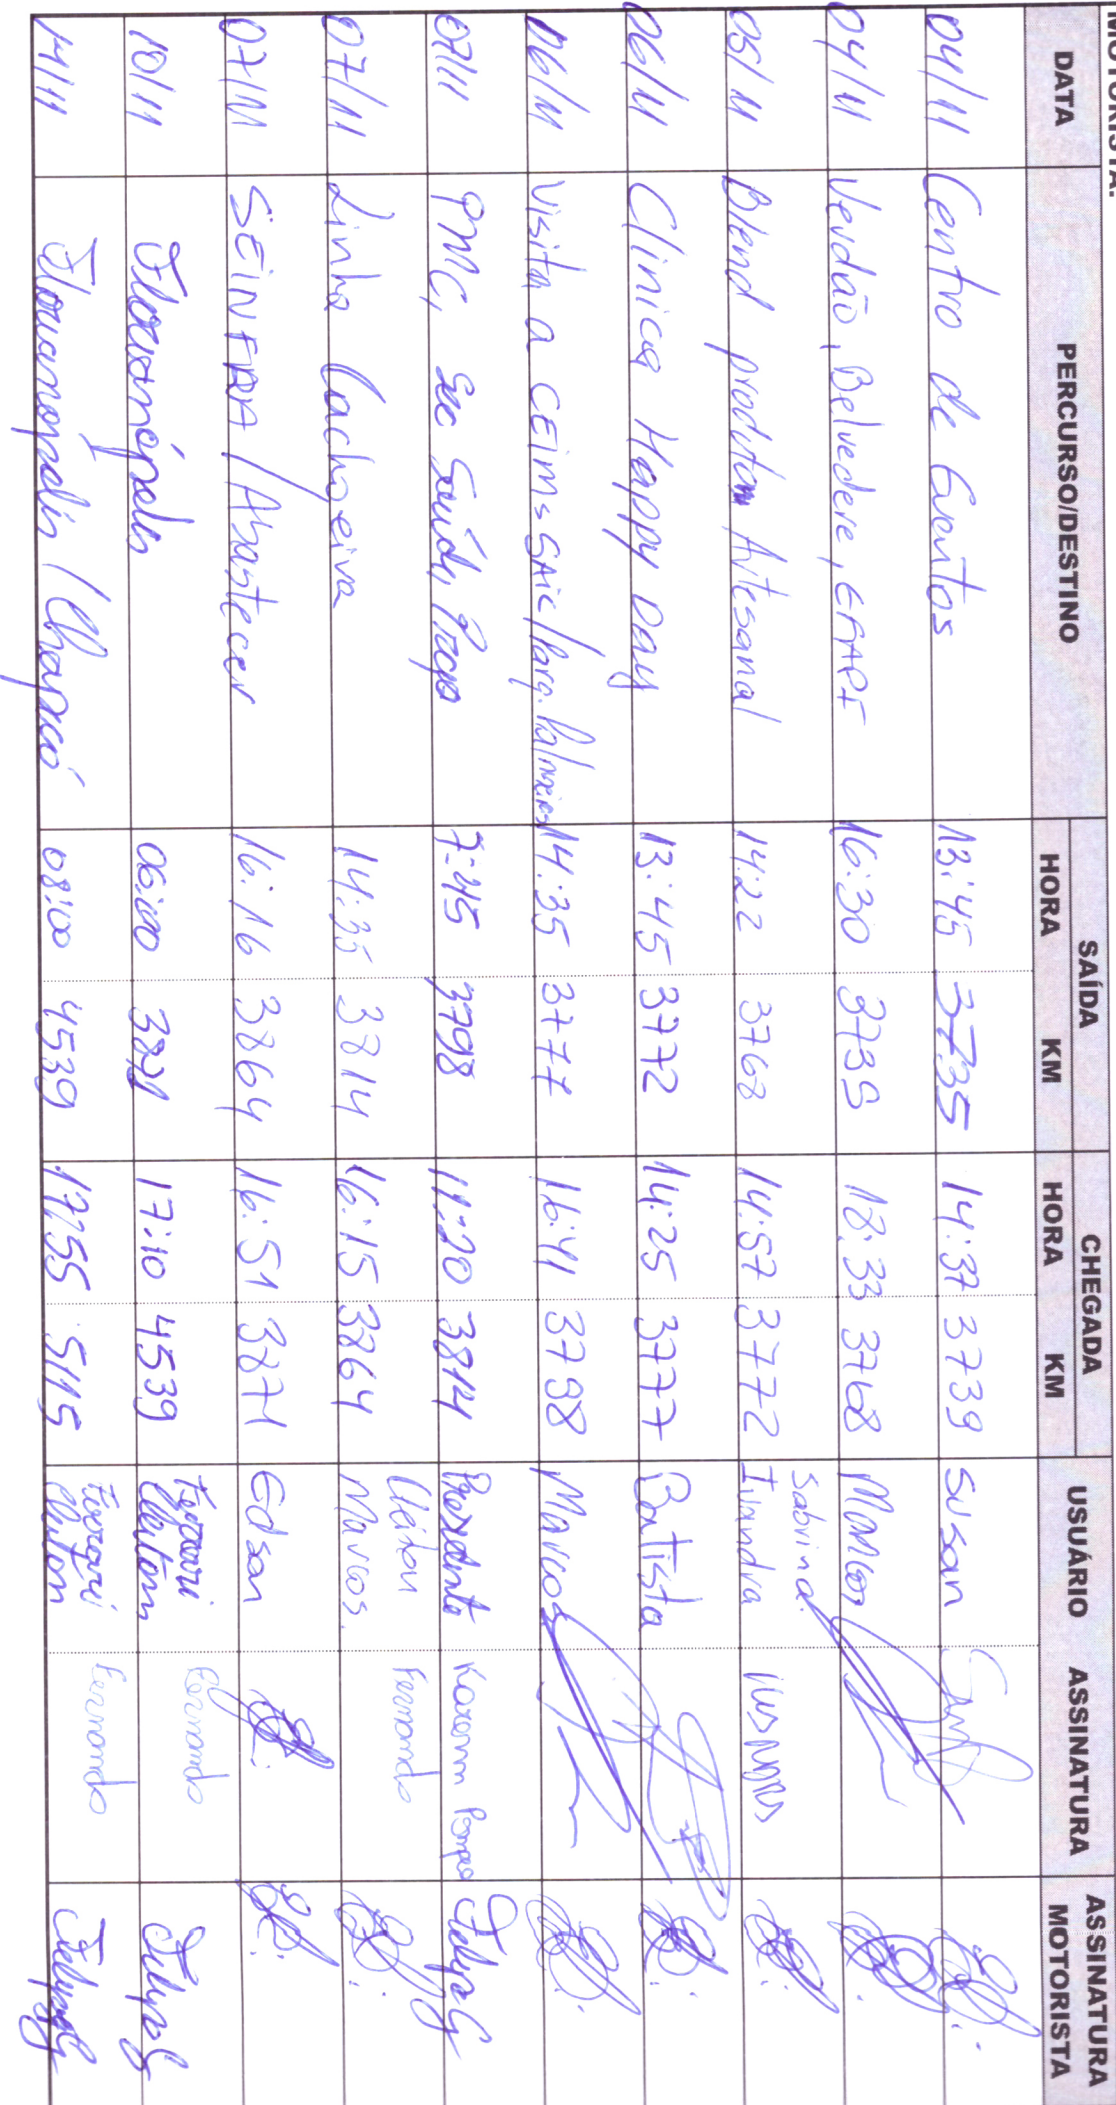 MOTORISTA:
DATA PERCURSO/DESTINO SAÍDA CHEGADA USUÁRIO ASSINATURA ASSINATURA MOTORISTA
HORA KM HORA KM
04/11 Centro de Eventos 13:45 3735 14:37 3739 Susan
04/11 Verdão, Belvedere, EFAPI 16:30 3739 18:33 3768 Marcos
05/11 Blend produtos Artesanal 14:22 3768 14:57 3772 Sabrina Ivandra
06/11 Clinica Happy Day 13:45 3772 14:25 3777 Batista
06/11 Visita a CEIMs SAIC/Parq. Palmeiras 14:35 3777 16:41 3798 Marcos
07/11 PMC, Sec Saúde, Praça 7:45 3798 11:20 3814 Presidente
07/11 Linha Cachoeira 14:35 3814 16:15 3864 Cleiton Marcos Fernando
07/11 SEINFRA / Abastecer 16:16 3864 16:51 3871 Edson
10/11 Florianópolis 06:00 3871 17:10 4539 Cleiton Fernando Felype
14/11 Florianópolis / Chapecó 08:00 4539 17:55 5115 Cleiton Fernando Felype